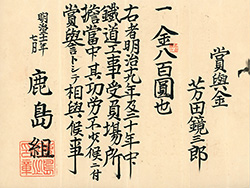 賞與金
芳田鏡三郎
一金八百圓也
右者明治廿九年及三十年中
鐵道工事受負場所
擔當中其功勞不少候ニ付
賞與トシテ相與候事
明治卅一年
七月
鹿島組